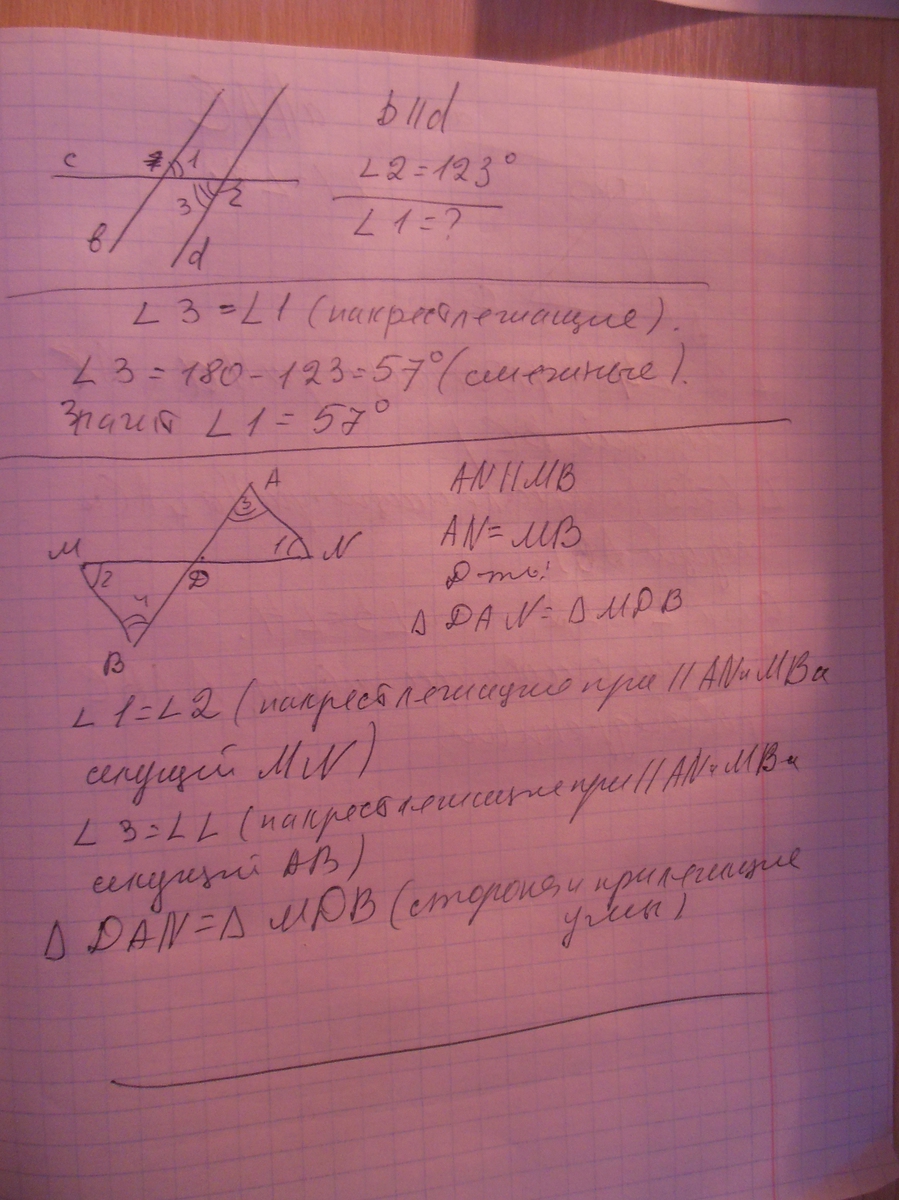 b || d
c 1
∠2 = 123°
3 2
∠1 = ?
в d
∠3 = ∠1 (накрестлежащие).
∠3 = 180 - 123 = 57° (смежные).
Значит ∠1 = 57°
A
3
AN || MB
M 1 N
AN = MB
2 D
Д-ть:
4
Δ DAN = Δ MDB
B
∠1 = ∠2 (накрестлежащие при || AN и MB и
секущей MN)
∠3 = ∠L (накрестлежащие при || AN и MB и
секущей AB)
Δ DAN = Δ MDB (сторона и прилежащие
углы)